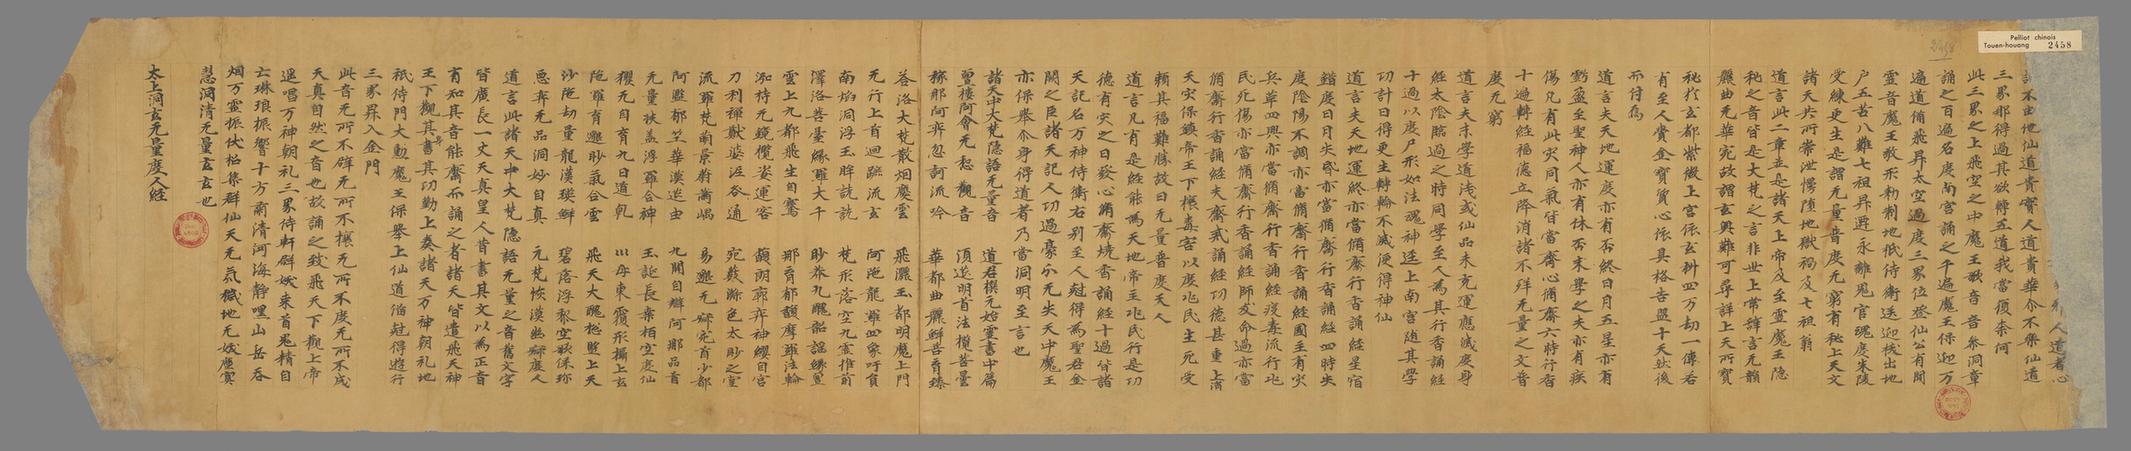 Pelliot chinois
Touen-houang 2458
2458
三界那得過其欲轉五道我當復柰何
此三界之上飛空之中魔王歌音音參洞章
誦之百遍名度南宮誦之千遍魔王保迎万
遍道備飛昇太空過度三界位登仙公有聞
靈音魔王敬形勑制地祇侍衛送迎拔出地
户五苦八難七祖昇遷永離鬼官魂度朱陵
受練更生是謂无量音度无窮有秘上天文
諸天共所崇泄慢墮地獄禍及七祖翁
道言此二章並是諸天上帝及至靈魔王隱
秘之音皆是大梵之言非世上常辞言无韻
麗曲无華宛故謂玄奧難可尋詳上天所寶
秘於玄都紫微上宮依玄科四万劫一傳若
有至人賷金寶質心依具格告盟十天然後
而付焉
道言夫天地運度亦有否終日月五星亦有
虧盈至聖神人亦有休否末學之夫亦有疾
傷凡有此灾同氣皆當齋心脩齋六時行香
十過轉經福德立降消諸不祥无量之文普
度无窮
道言夫末學道淺或仙品未充運應滅度身
經太陰臨過之時同學至人爲其行香誦經
十過以度尸形如法魂神逕上南宮随其學
功計日得更生轉輪不滅便得神仙
道言夫天地運終亦當脩齋行香誦經星宿
錯度日月失昏亦當脩齋行香誦經四時失
度陰陽不調亦當脩齋行香誦經國主有灾
兵革四興亦當脩齋行香誦經疫毒流行兆
民死傷亦當脩齋行香誦經師友命過亦當
脩齋行香誦經夫齋戒誦經功德甚重上消
天灾保鎮帝王下攘毒害以度兆民生死受
賴其福難勝故曰无量普度天人
道言凡有是經能爲天地帝王兆民行是功
德有灾之日發心脩齋燒香誦經十過皆諸
天記名万神侍衛右别至人尅得爲聖君金
闕之臣諸天記人功過豪分无失天中魔王
亦保舉尒身得道者乃當洞明至言也
諸天中大梵隱語无量音
道君撰元始靈書中篇
亶樓阿會 无惒觀音 須延明首 法攬菩曇
稼那阿弈 忽訶流吟 華都曲麗 鮮菩育臻
荅洛大梵 散烟慶雲 飛灑玉都 明魔上門
无行上首 迴蹠流玄 阿陁龍羅 四象吁負
南焰洞浮 玉眸詵詵 梵形落空 九靈推前
澤洛菩臺 緣羅大千 眇莽九醜 韶謡緣亶
雲上九都 飛生自騫 那育郁馥 摩羅法輪
泓持无鏡 攬姿運容 馥朗廓弈 神纓自宮
刀利禪猷 婆泥咎通 宛藪滌色 太眇之堂
流羅梵萠 景蔚蕭嵎 易邈无寂 宛首少都
阿濫郁竺 華漠延由 九開自辯 阿那品首
无量扶蓋 浮羅合神 玉誕長桑 栢空度仙
獶无自育 九日道乹 坤母東覆 形攝上玄
陁羅育邈 眇氣合雲 飛天大醜 揔監上天
沙陁劫量 龍漢瑛鮮 碧落浮黎 空歌保珎
惡弈无品 洞妙自真 元梵恢漠 幽寂度人
道言此諸天中大梵隱語无量之音舊文字
皆廣長一丈天真皇人昔書其文以爲正音
有知其音能齋而誦之者諸天皆遣飛天神
王下觀其身書其功勤上奏諸天万神朝礼地
祇侍門大勳魔王保舉上仙道備尅得遊行
三界昇入金門
此音无所不辟无所不攘无所不度无所不成
天真自然之音也故誦之致飛天下觀上帝
遥唱万神朝礼三界侍軒群妖束首鬼精自
亡琳琅振響十方肅清河海静嘿山岳吞
烟万靈振伏招集群仙天无氛穢地无妖塵冥
慧洞清无量玄玄也
太上洞玄无量度人經